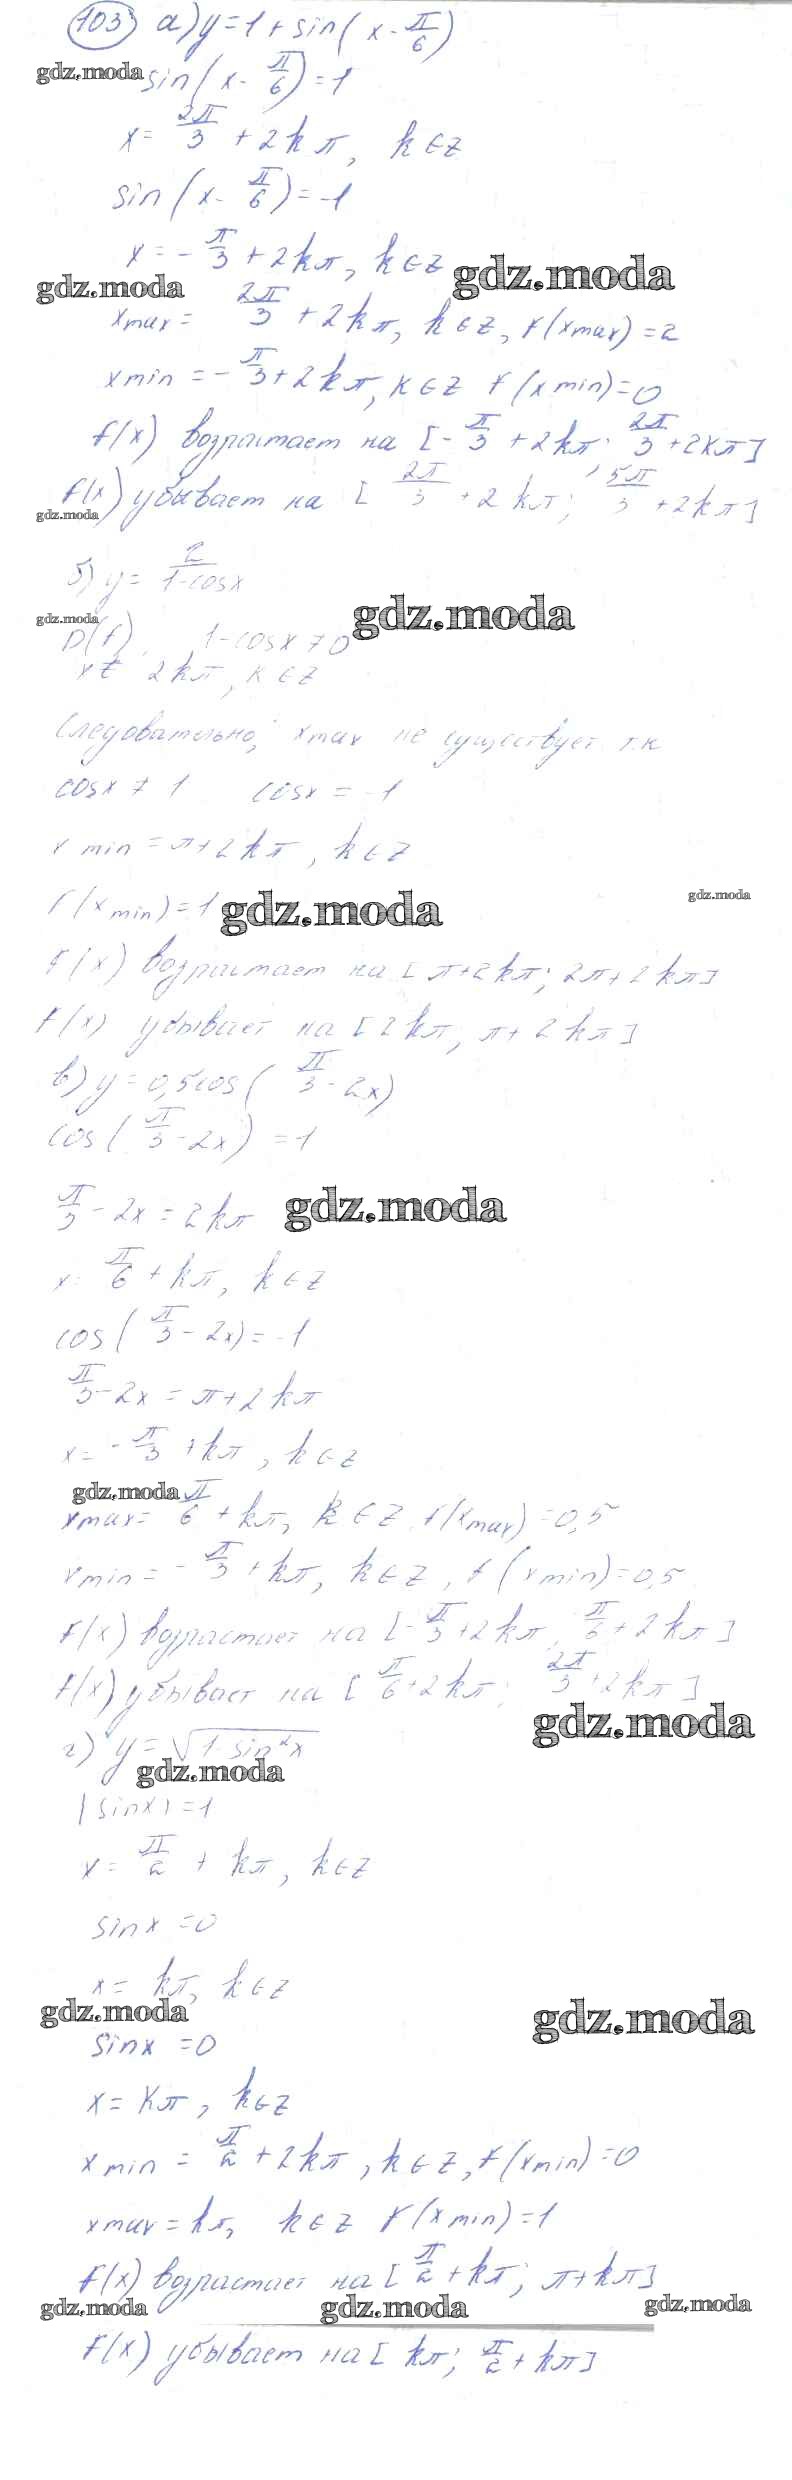 103 а) y = 1 + sin(x - π/6)
gdz.moda
sin(x - π/6) = 1
x = 2π/3 + 2kπ, k ∈ Z
sin(x - π/6) = -1
x = -π/3 + 2kπ, k ∈ Z
gdz.moda
gdz.moda
xmax = 2π/3 + 2kπ, k ∈ Z, f(xmax) = 2
xmin = -π/3 + 2kπ, k ∈ Z f(xmin) = 0
f(x) возрастает на [-π/3 + 2kπ; 2π/3 + 2kπ]
f(x) убывает на [2π/3 + 2kπ; 5π/3 + 2kπ]
gdz.moda
б) y = 2/(1-cosx)
gdz.moda
gdz.moda
D(f) 1-cosx ≠ 0
x ≠ 2kπ, k ∈ Z
Следовательно, xmax не существует т.к
cosx ≠ 1 cosx = -1
xmin = π + 2kπ, k ∈ Z
f(xmin) = 1
gdz.moda
gdz.moda
f(x) возрастает на [π+2kπ; 2π+2kπ]
f(x) убывает на [2kπ; π+2kπ]
в) y = 0,5cos(π/3 - 2x)
cos(π/3 - 2x) = 1
π/3 - 2x = 2kπ
gdz.moda
x = π/6 + kπ, k ∈ Z
cos(π/3 - 2x) = -1
π/3 - 2x = π + 2kπ
x = -π/3 + kπ, k ∈ Z
gdz.moda
xmax = π/6 + kπ, k ∈ Z, f(xmax) = 0,5
xmin = -π/3 + kπ, k ∈ Z, f(xmin) = 0,5
f(x) возрастает на [-π/3 + 2kπ, π/6 + 2kπ]
f(x) убывает на [π/6 + 2kπ; 2π/3 + 2kπ]
gdz.moda
г) y = √(1-sin²x)
gdz.moda
|sinx| = 1
x = π/2 + kπ, k ∈ Z
sinx = 0
x = kπ, k ∈ Z
gdz.moda
gdz.moda
sinx = 0
x = kπ, k ∈ Z
xmin = π/2 + 2kπ, k ∈ Z, f(xmin) = 0
xmax = kπ, k ∈ Z f(xmin) = 1
f(x) возрастает на [π/2 + kπ; π + kπ]
gdz.moda
gdz.moda
gdz.moda
f(x) убывает на [kπ; π/2 + kπ]